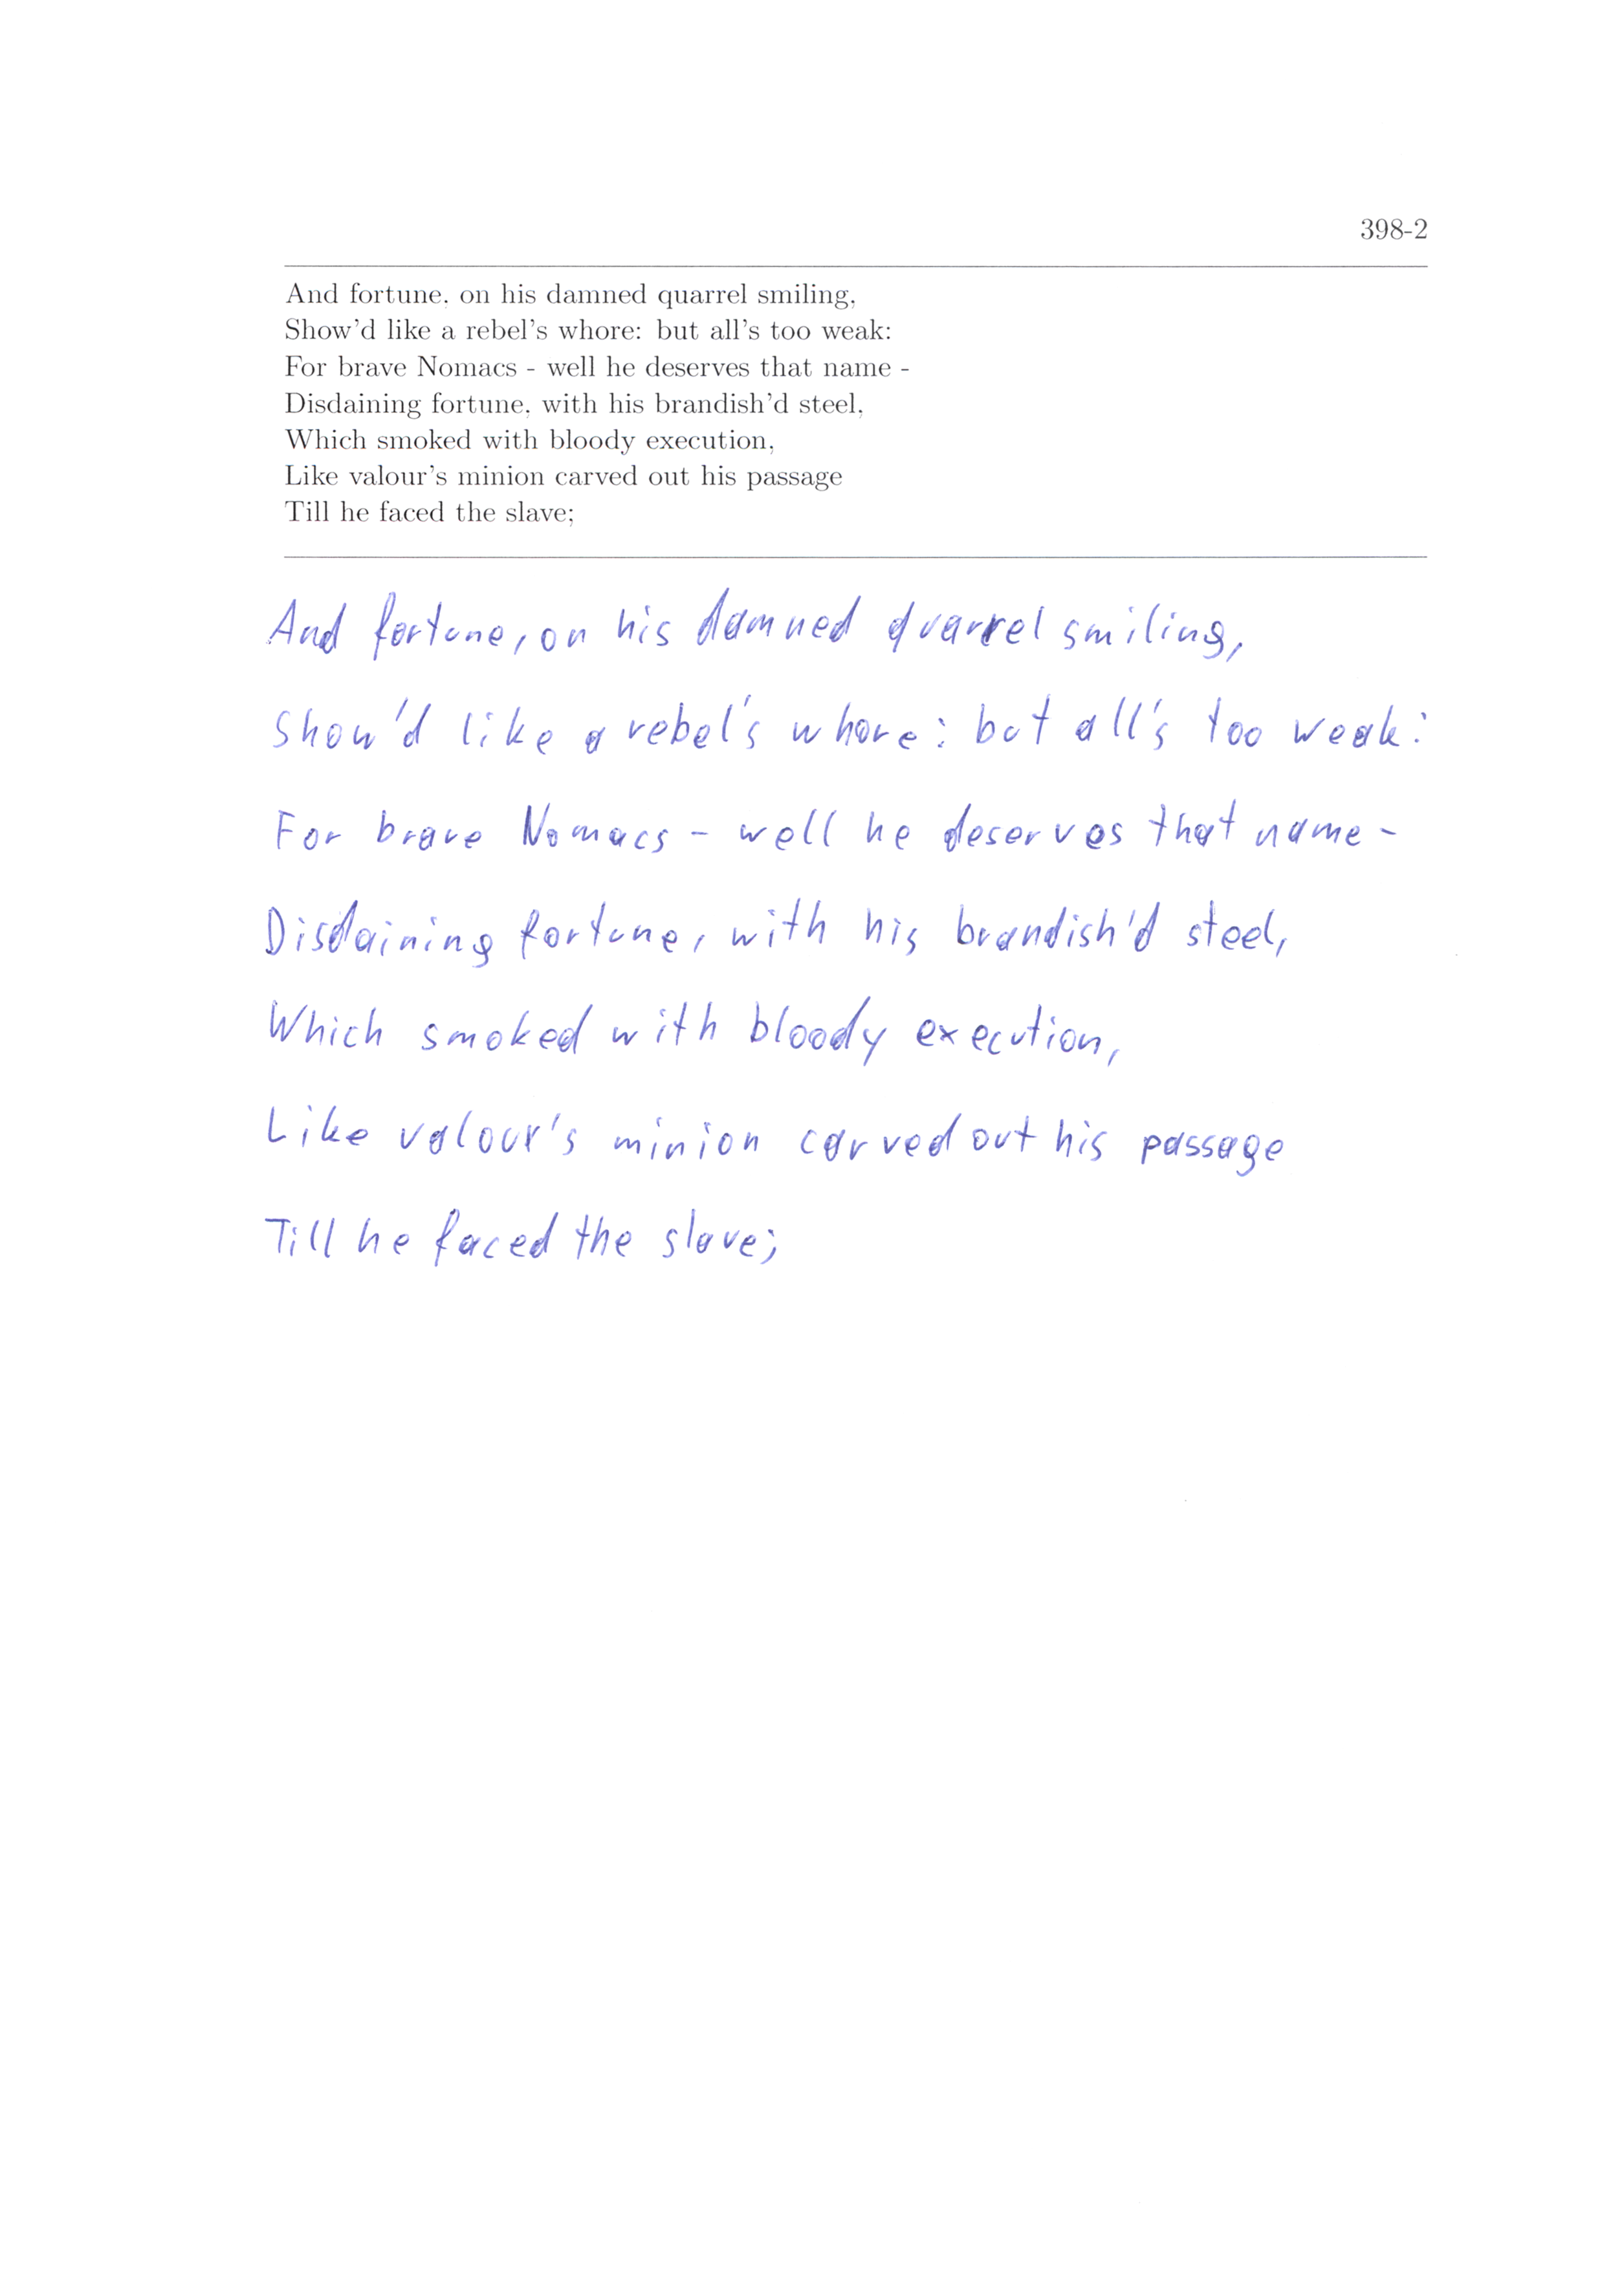 398-2
And fortune, on his damned quarrel smiling,
Show'd like a rebel's whore: but all's too weak:
For brave Nomacs - well he deserves that name -
Disdaining fortune, with his brandish'd steel,
Which smoked with bloody execution,
Like valour's minion carved out his passage
Till he faced the slave;
And fortune, on his damned quarrel smiling,
Show'd like a rebel's whore: but all's too weak:
For brave Nomacs - well he deserves that name -
Disdaining fortune, with his brandish'd steel,
Which smoked with bloody execution,
Like valour's minion carved out his passage
Till he faced the slave;